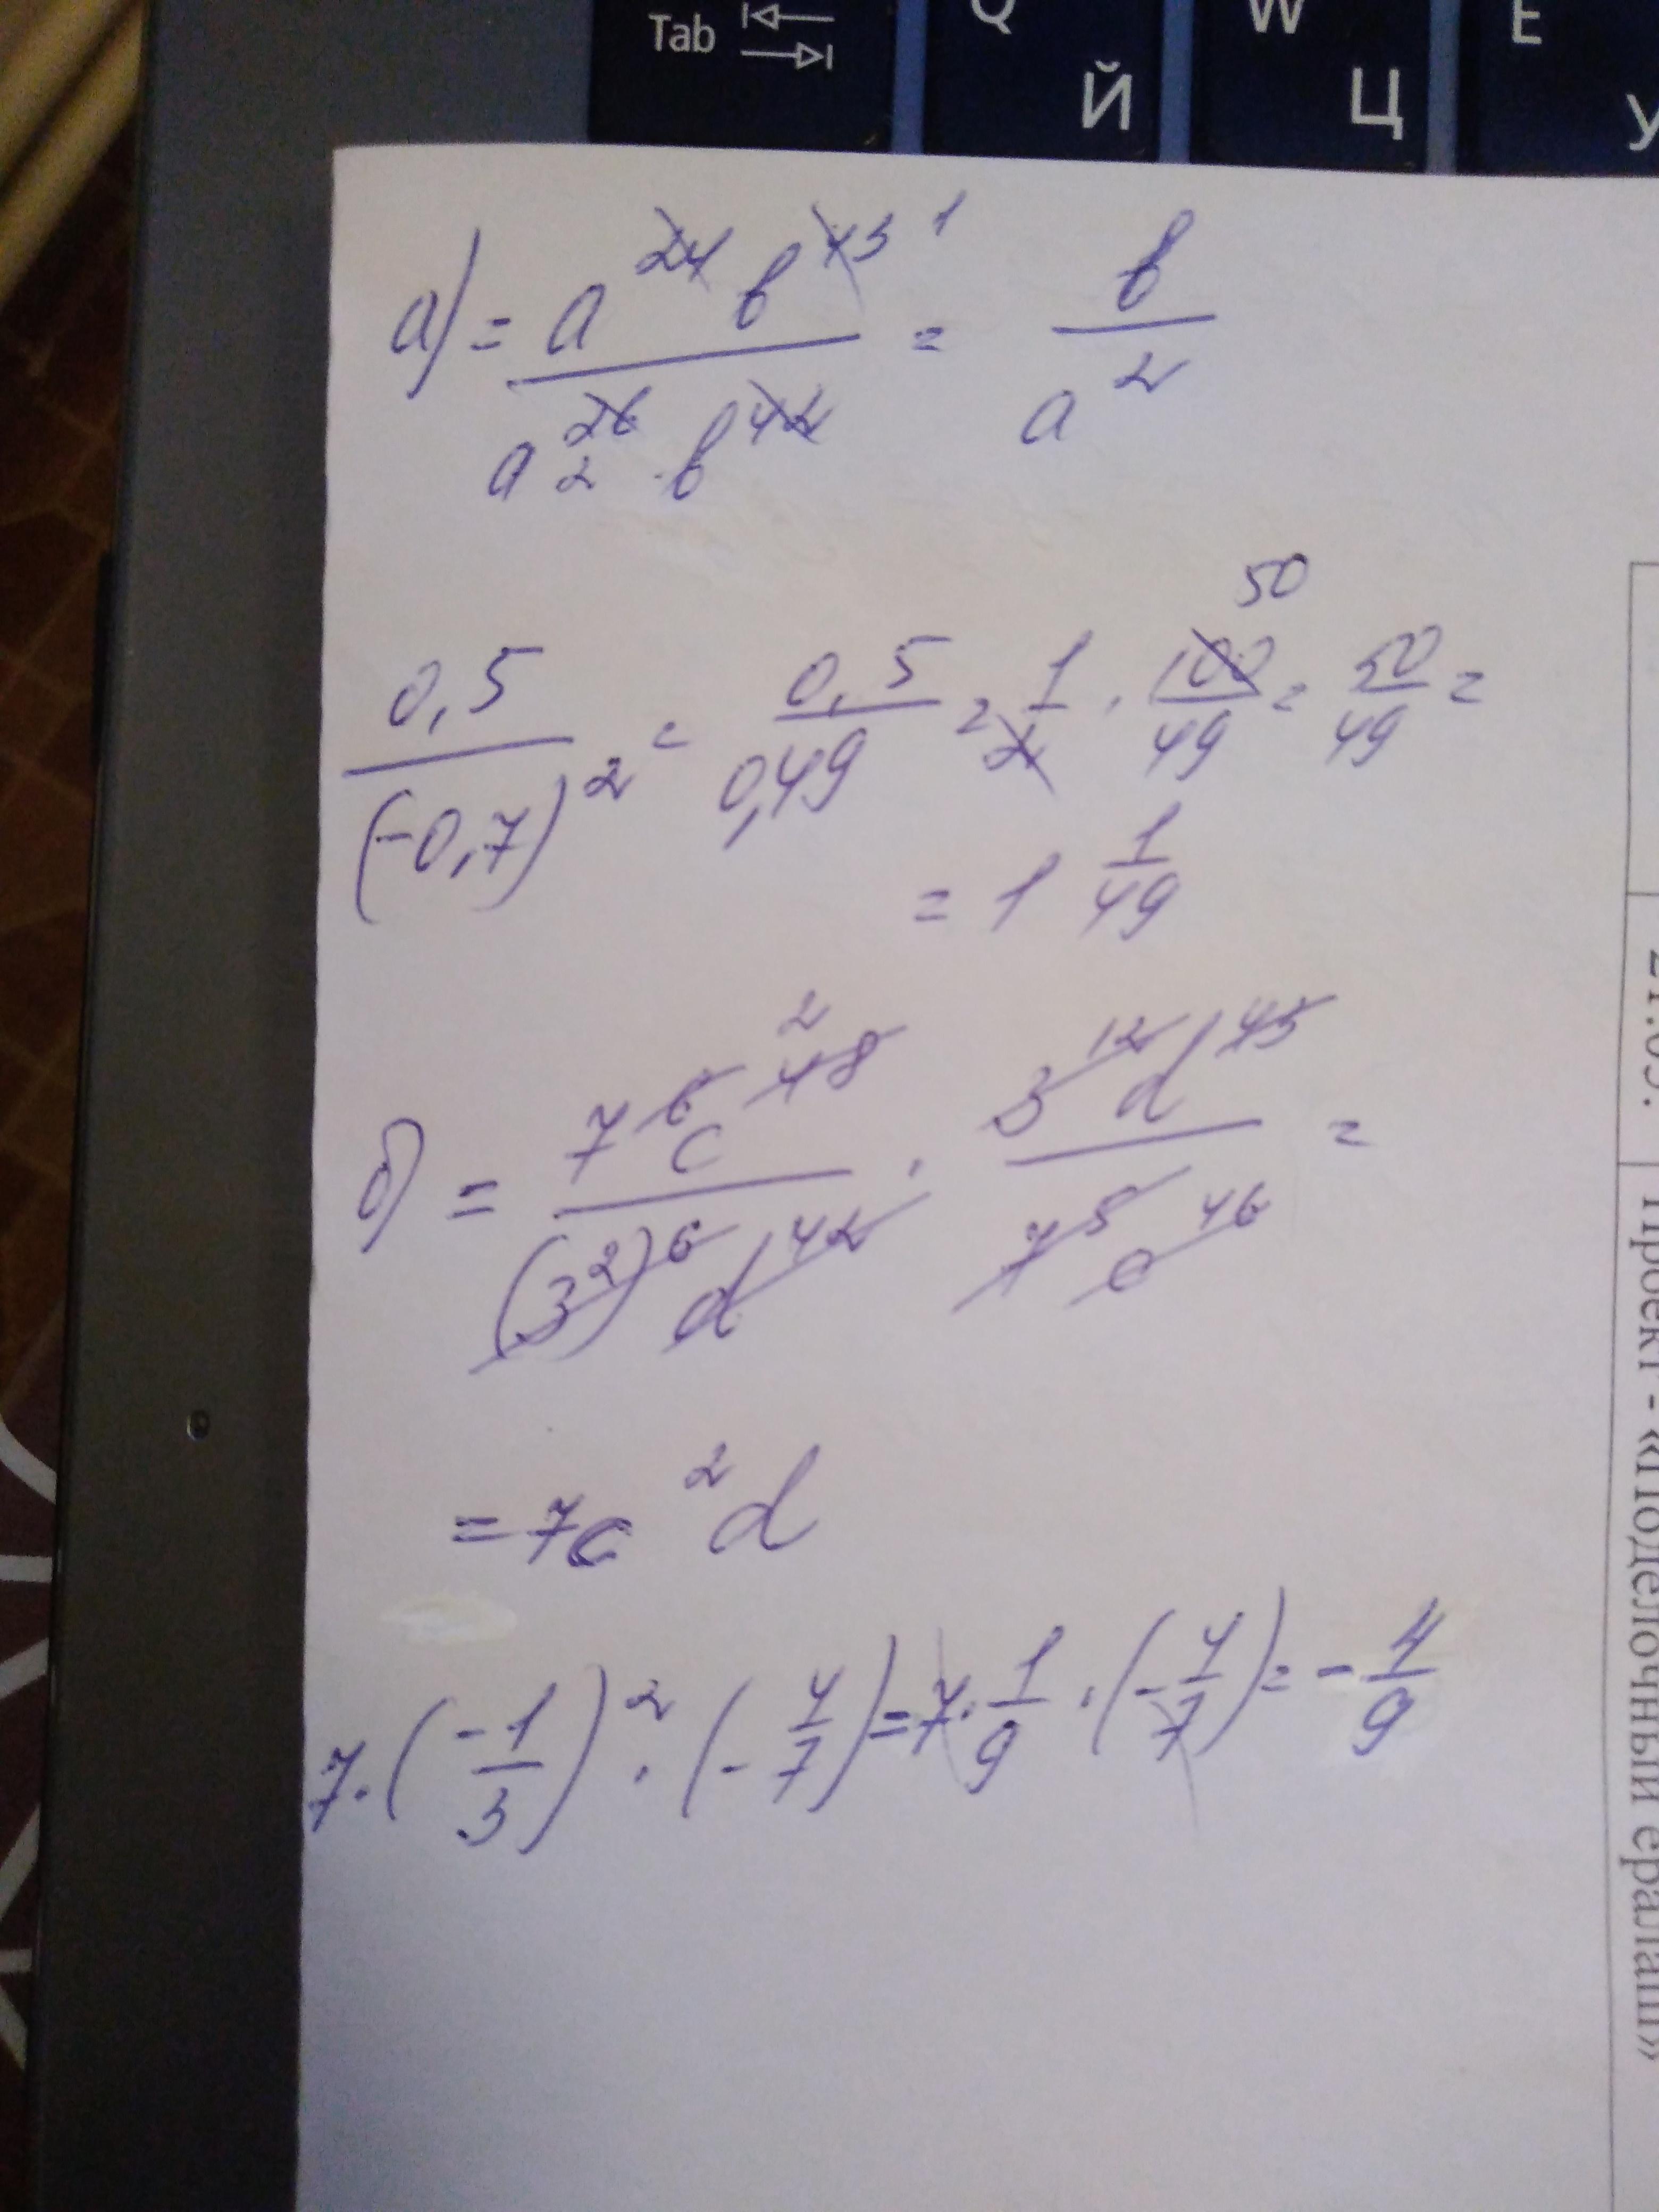 Tab
Q Й
W Ц
E У
а) = a^24 b^43 1 / a^26 2 · b^42 = b / a^2
0,5 / (-0,7)^2 = 0,5 / 0,49 = 1/2 · 100/49 50 = 50/49 =
= 1 1/49
б) = 7^6 c^48 2 / (3^2)^6 d^42 · 3^12 d^43 / 7^5 c^46 =
= 7c^2 d
7 · (-1/3)^2 · (-4/7) = 7 · 1/9 · (-4/7) = -4/9
Проект - «Поделочный ералаш»